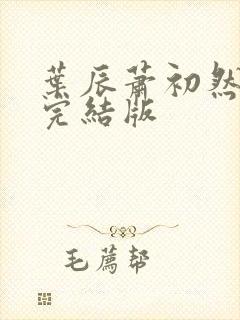 葉辰蕭初然
完結版
毛薦幫